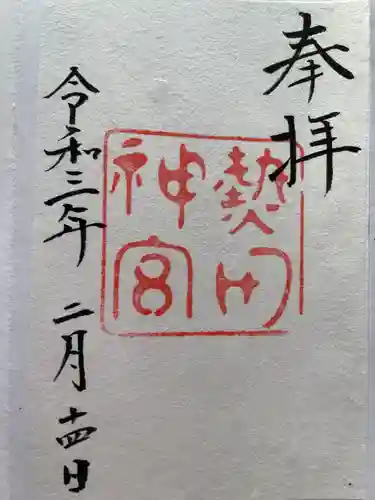 奉拝
熱田
神宮
令和三年二月十四日